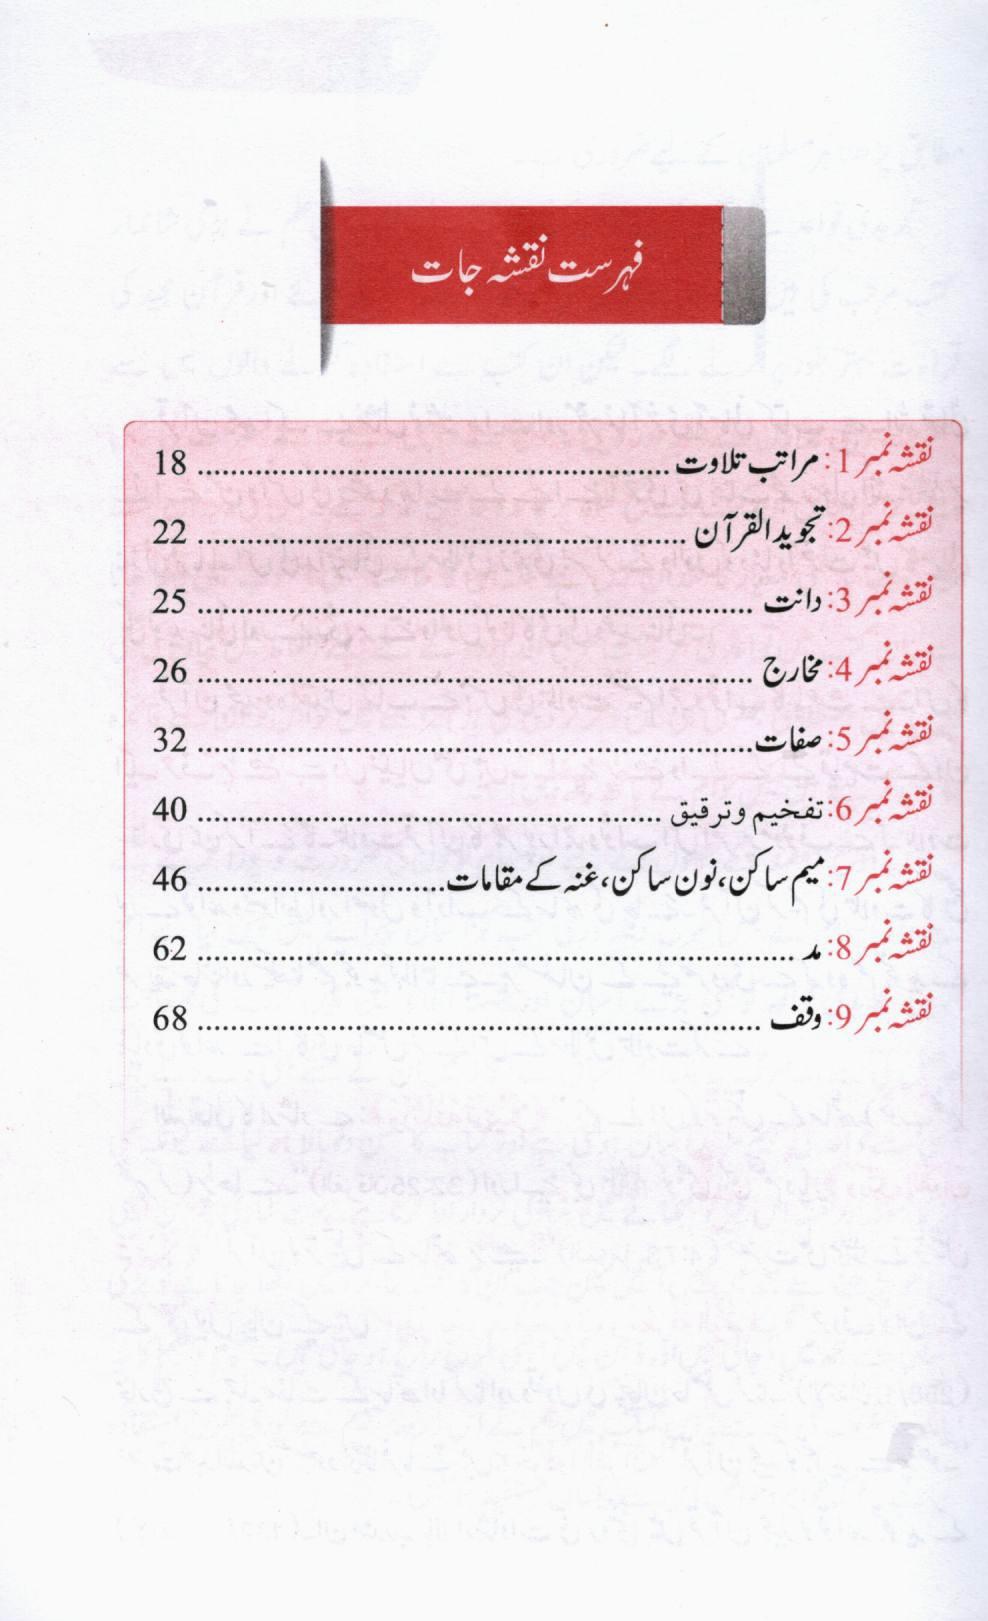 فہرست نقشہ جات
نقشہ نمبر 1: مراتب تلاوت ........................................ 18
نقشہ نمبر 2: تجوید القرآن ........................................ 22
نقشہ نمبر 3: دانت ........................................ 25
نقشہ نمبر 4: مخارج ........................................ 26
نقشہ نمبر 5: صفات ........................................ 32
نقشہ نمبر 6: تفخیم و ترقیق ........................................ 40
نقشہ نمبر 7: میم ساکن، نون ساکن، غنہ کے مقامات ........................................ 46
نقشہ نمبر 8: مد ........................................ 62
نقشہ نمبر 9: وقف ........................................ 68